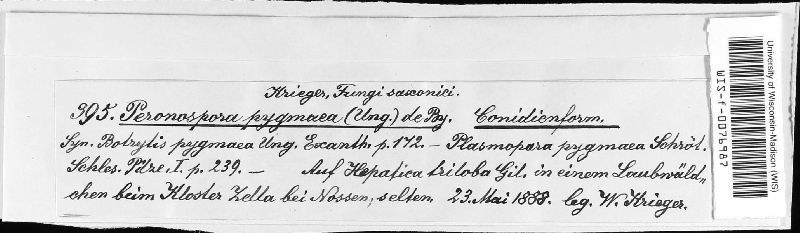 Krieger, Fungi saxonici.
395. Peronospora pygmaea (Ung.) de By. Conidienform.
Syn. Botrytis pygmaea Ung. Exanth. p. 172. – Plasmopara pygmaea Schröt.
Schles. Pilze. I. p. 239. – Auf Hepatica triloba Gil. in einem Laubwäld„
chen beim Kloster Zella bei Nossen, selten. 23. Mai 1888. leg. W. Krieger.
University of Wisconsin-Madison (WIS)
WIS-f-0076987